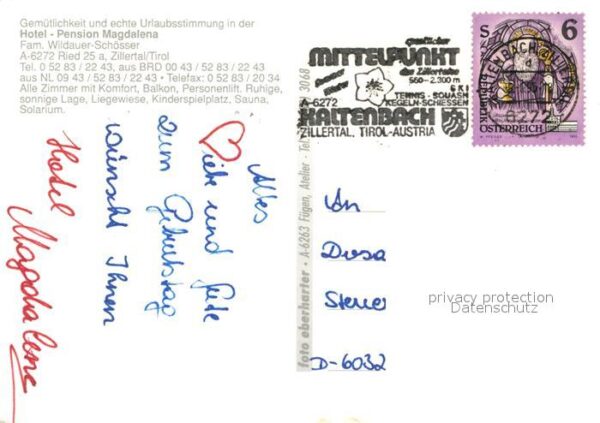 Gemütlichkeit und echte Urlaubsstimmung in der
Hotel - Pension Magdalena
Fam. Wildauer-Schösser
A-6272 Ried 25 a, Zillertal/Tirol
Tel. 0 52 83 / 22 43, aus BRD 00 43 / 52 83 / 22 43
aus NL 09 43 / 52 83 / 22 43 • Telefax: 0 52 83 / 20 34
Alle Zimmer mit Komfort, Balkon, Personenlift. Ruhige,
sonnige Lage, Liegewiese, Kinderspielplatz, Sauna,
Solarium.
Alles
Liebe und Gute
zum Geburtstag
wünscht Ihnen
Hotel
Magdalena
foto eberharter • A-6263 Fügen, Atelier - Tel.
3068
MITTELPUNKT
des Zillertales
550 - 2.300 m
SKI
TENNIS - SQUASH
KEGELN-SCHIESSEN
A-6272
KALTENBACH
ZILLERTAL, TIROL-AUSTRIA
S 6
6272
REPUBLIK
ÖSTERREICH
An
D-6032
privacy protection
Datenschutz